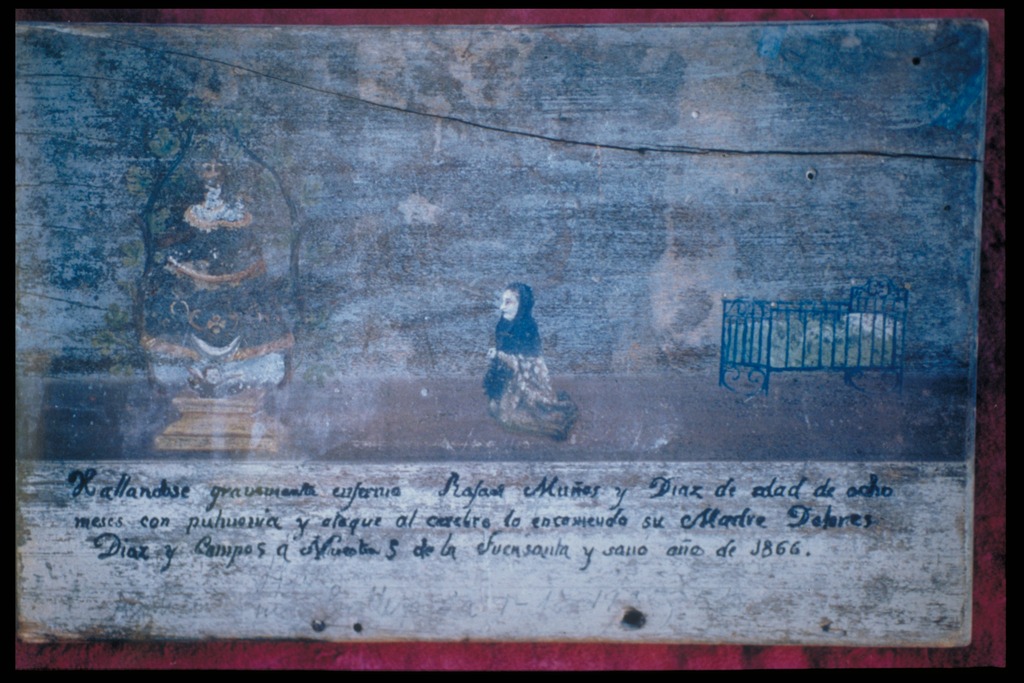 Hallandose gravemente enfermo Rafael Muñoz y Diaz de edad de ocho
meses con pulmonia y ataque al cerebro lo encomendo su Madre Dolores
Diaz y Campos á Nuestra S de la Fuensanta y sanó año de 1866.